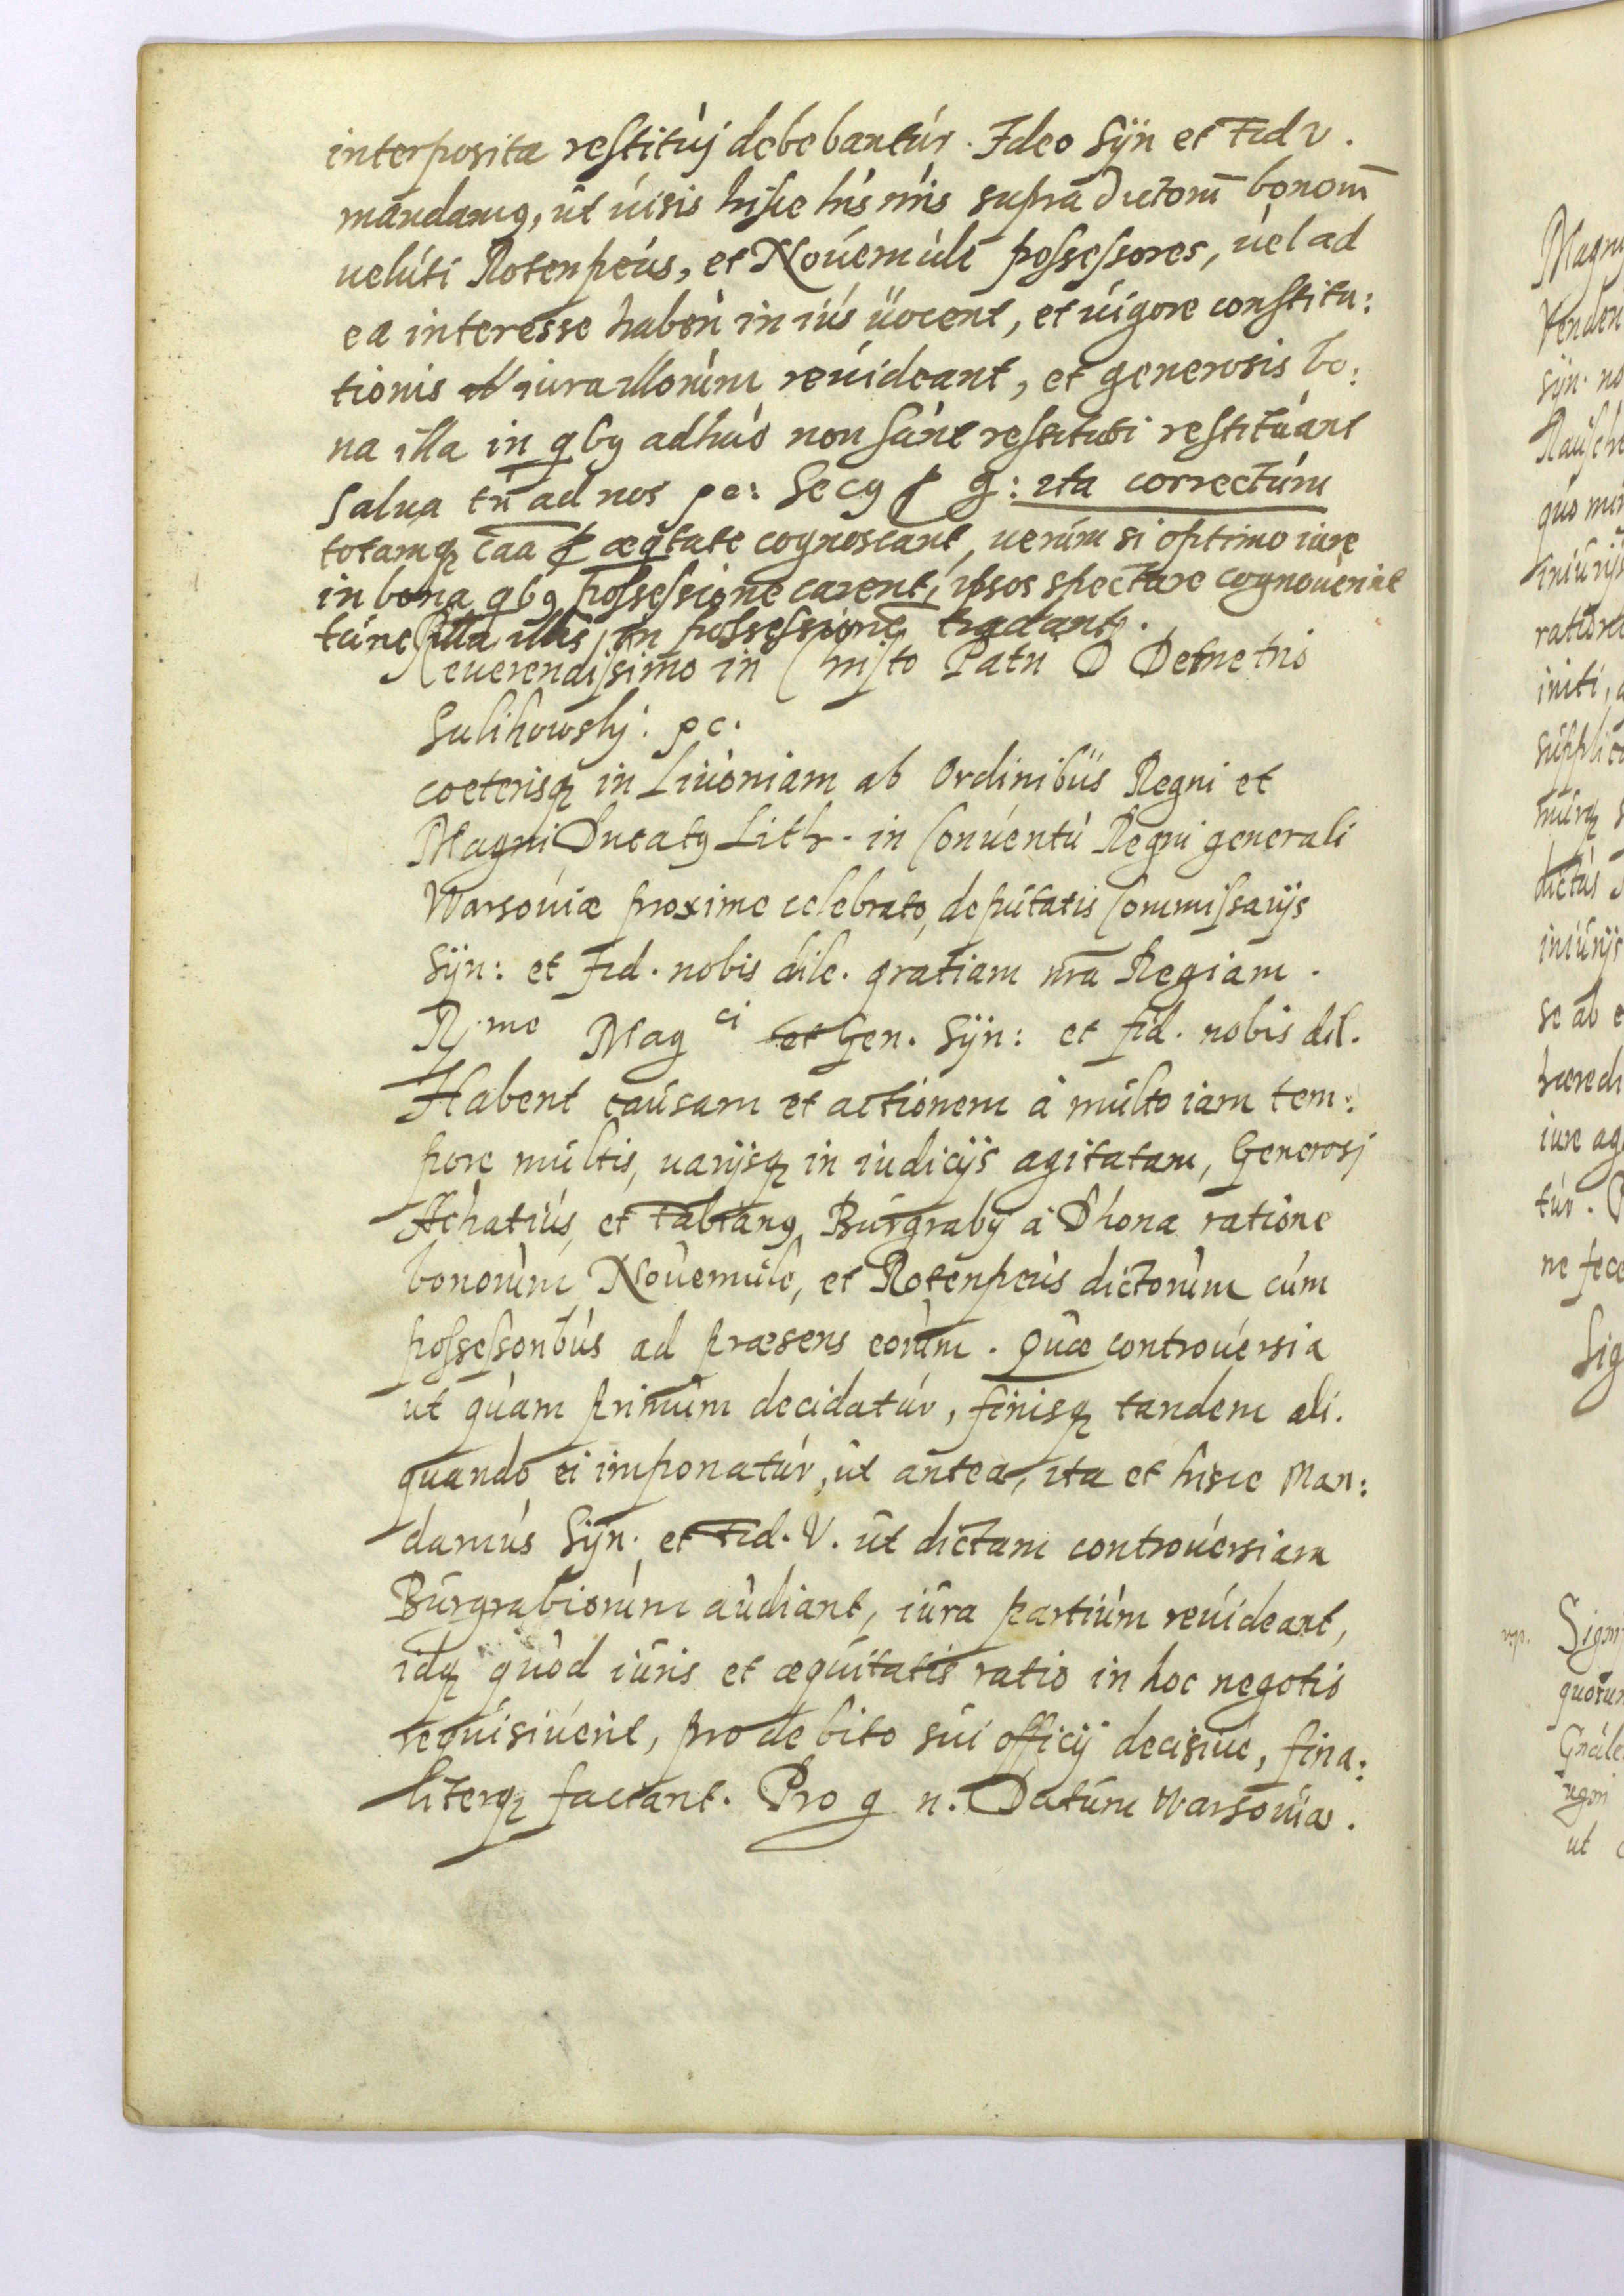 interposita restituj debebantur. Ideo Syn et Fid V.
mandamꝰ, ut uisis hisce lris nris supra dictorũ bonorũ
ueluti Rotenpeus, et Nouemule possessores, uel ad
ea interesse haben in ius uocent, et uigore constitu:
tionis iura illorum reuideant, et generosis bo:
na illa in qbꝰ adhuc non sunt restituti restituant
salua tñ ad nos pe: Secꝰ ꝑ g: ita correctum
totamqꝫ cãa ꝑ æqtate cognoscant, uerum si optimo iure
in bona qbꝰ possessione carent, ipsos spectare cognouerint
tunc illa illis in possessionẽ tradant.
Reuerendissimo in Christo Patri D Demetrio
Sulikowskj: pc.
coeterisqꝫ in Liuoniam ab Ordinibus Regni et
Magni Ducatꝰ Lith. in Conuentu Regni generali
Warsouiæ proxime celebrato, deputatis Commissarijs
Syn: et Fid. nobis dile. gratiam nrã Regiam.
R.me Mag ci et Gen. Syn: et fid. nobis dil.
Habent causam et actionem a multo iam tem:
pore multis, uarijsqꝫ in iudicijs agitatam, Generosj
Achatius, et Fabianꝰ Burgrabij a Dhona ratione
bonorum Nouemule, et Rotenpeus dictorum cum
possessoribus ad præsens eorum. Quæ controuersia
ut quam primum decidatur, finisqꝫ tandem ali.
quando ei imponatur, ut antea, ita et hisce Man:
damus Syn. et Fid. V. ut dictam controuersiam
Burgrabiorum audiant, iura partium reuideant,
idqꝫ quod iuris et æquitatis ratio in hoc negotio
requisiuerit, pro debito sui officij decisiue, fina:
literqꝫ faciant. Pro g n. Datum Warsouiæ.